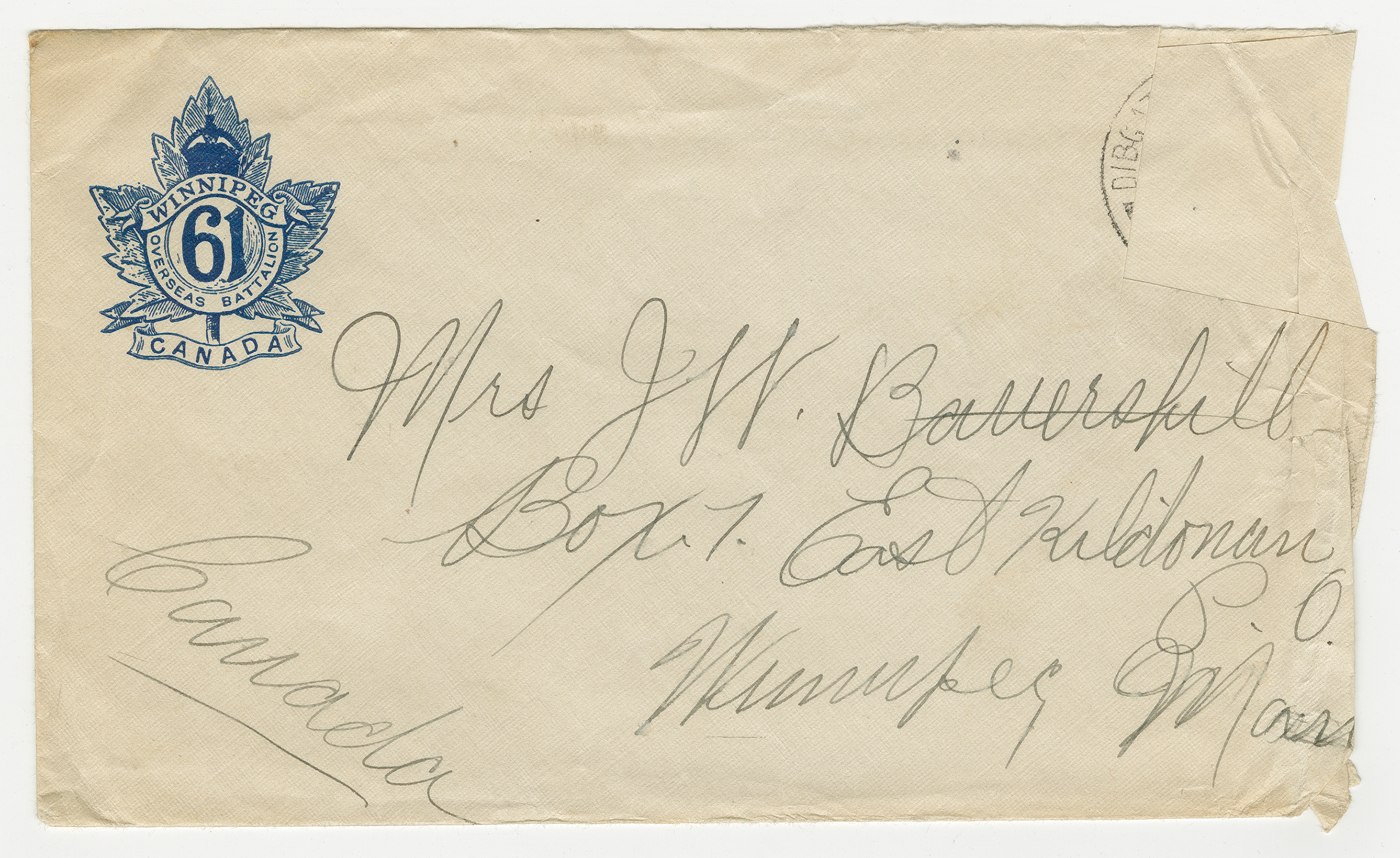 WINNIPEG
61
OVERSEAS BATTALION
CANADA
Mrs J W. Battershill
Box 7. East Kildonan
P. O.
Winnipeg Man
Canada